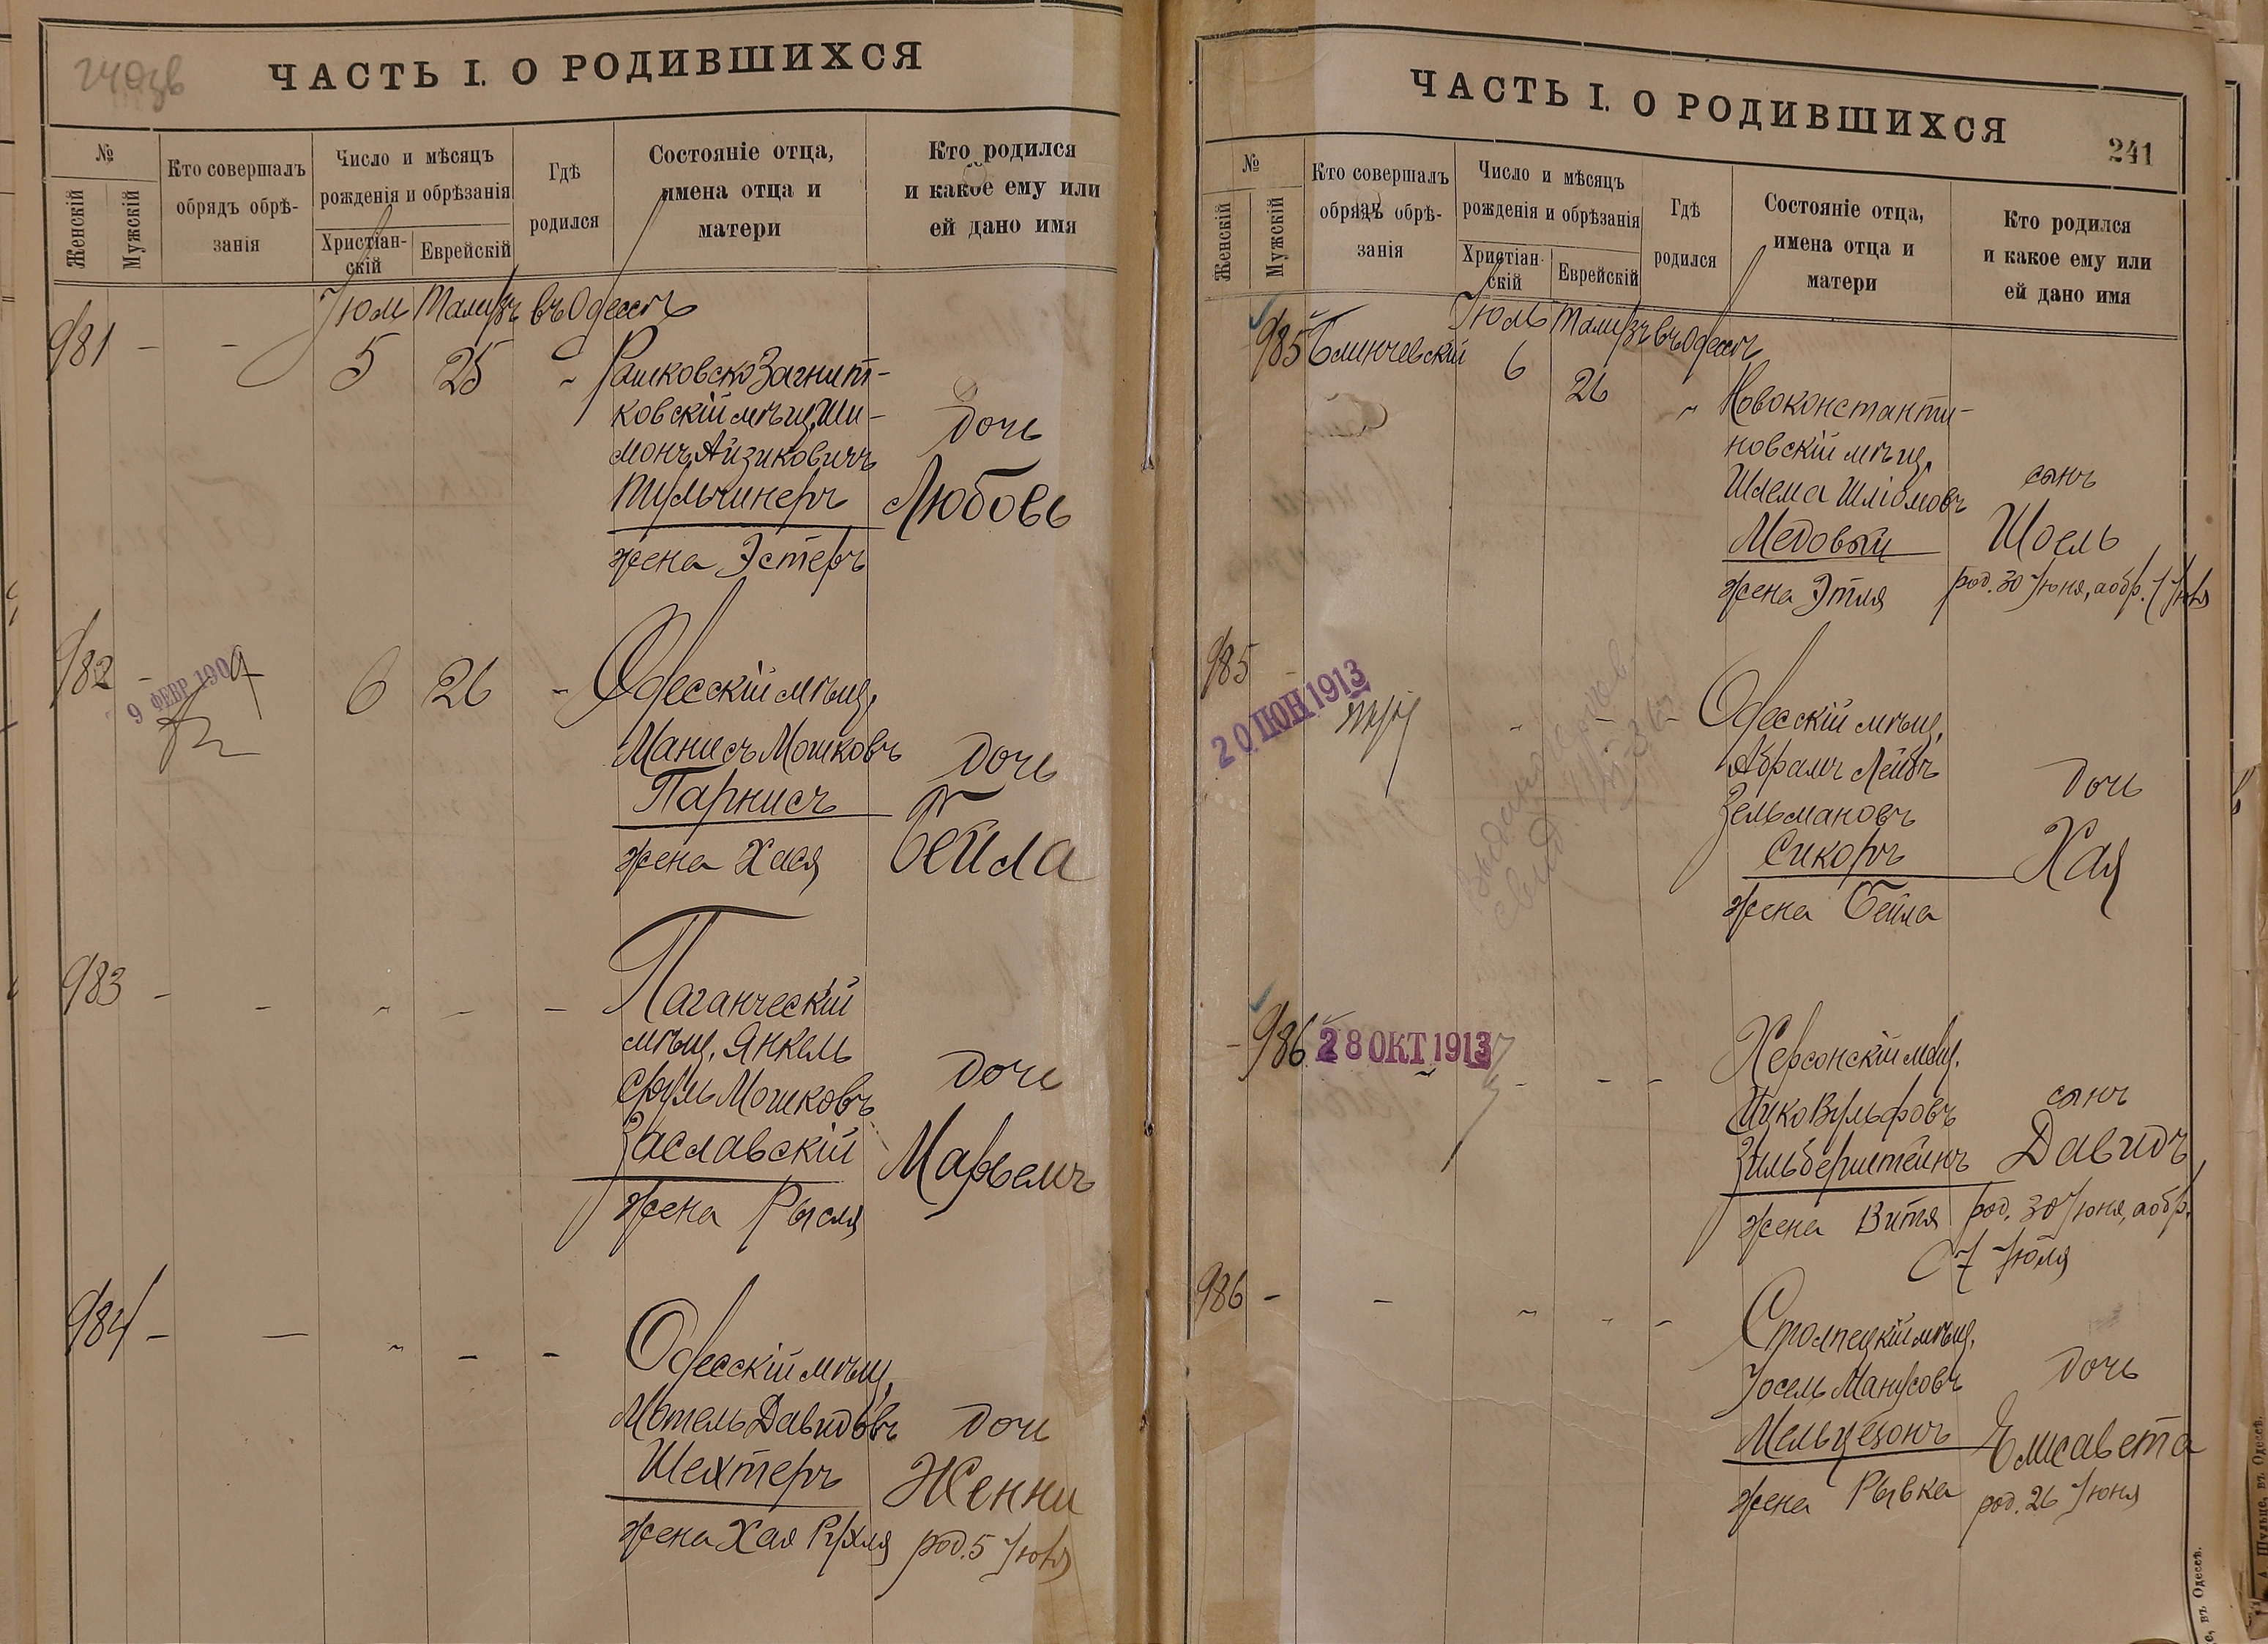 240зв
ЧАСТЬ I. О РОДИВШИХСЯ
№
Женскій
Мужскій
Кто совершалъ
обрядъ обрѣ-
занія
Число и мѣсяцъ
рожденія и обрѣзанія
Христіан-
скій
Еврейскій
Гдѣ
родился
Состояніе отца,
имена отца и
матери
Кто родился
и какое ему или
ей дано имя
Іюль Тамузъ въ Одессѣ
981 - - 5 25
Рашковско Загнит-
ковскій мѣщ. Ши-
монъ Айзиковичъ
Тульчинеръ
жена Эстеръ
дочь
Любовь
982 -
9 ФЕВР 190
6 26 -
Одесскій мѣщ.
Манисъ Мошковъ
Парнисъ
жена Хася
дочь
Бейла
983 - - - - -
мѣщ. Янкель
Сруль Мошковъ
Заславскій
жена Рысля
дочь
Марьемъ
984 - - - - -
Одесскій мѣщ.
Мотель Давидовъ
Шехтеръ
жена Хая Рухля
дочь
Женни
род. 5 Іюля
ЧАСТЬ I. О РОДИВШИХСЯ
241
№
Женскій
Мужскій
Кто совершалъ
обрядъ обрѣ-
занія
Число и мѣсяцъ
рожденія и обрѣзанія
Христіан-
скій
Еврейскій
Гдѣ
родился
Состояніе отца,
имена отца и
матери
Кто родился
и какое ему или
ей дано имя
Іюль Тамузъ въ Одессѣ
985 Блинчевскій 6 26
Новоконстанти-
новскій мѣщ.
Шлема Шліомовъ
Медовый
жена Этля
сынъ
Шоель
род. 30 Іюня, а обр. 7 Іюля
985 -
20 ІЮН 1913
Одесскій мѣщ.
Абрамъ Лейбъ
Зельмановъ
Сикоръ
жена Бейла
дочь
Хая
- 986
28 ОКТ 1913
Херсонскій мѣщ.
Ицко Вульфовъ
Зильберштейнъ
жена Витя
сынъ
Давидъ
род. 30 Іюня, а обр.
7 Іюля
986 - - - - -
Столпецкій мѣщ.
Іосель Манусовъ
Мельцезонъ
жена Рывка
дочь
Елисавета
род. 26 Іюня
въ Одессѣ.
А. Шульце, въ Одессѣ.